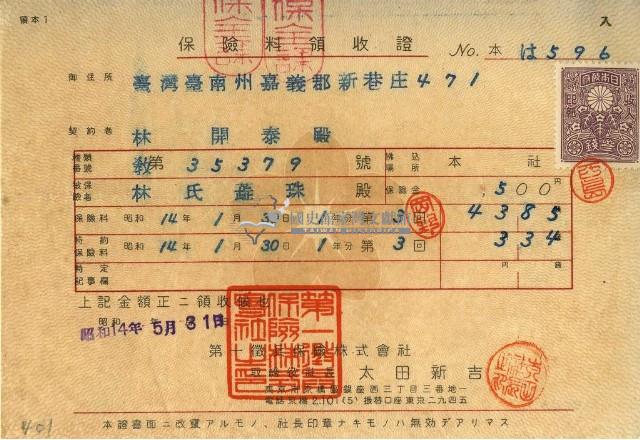 領本1
入
保險料領收證
No. 本 は596
御住所 臺灣臺南州嘉義郡新巷庄471
契約者 林 開泰 殿
種類番號 教第 35379 號 拂込場所 本社
被保險者名 林氏 珠 殿 保險金 500 円
保險料 昭和 14年 1月 30日 1年分 第 3回 4385
特約保險料 昭和 14年 1月 30日 1年分 第 3回 334
特定記事欄 円 錢
上記金額正ニ領收候也
昭和14年 5月 31日
第一徵兵保險株式會社
太田新吉
東京市京橋區銀座西三丁目三番地一
電話京橋2.101(5) 振替口座東京二九四五
本證書面ニ改竄アルモノ、社長印章ナキモノハ無効デアリマス
401